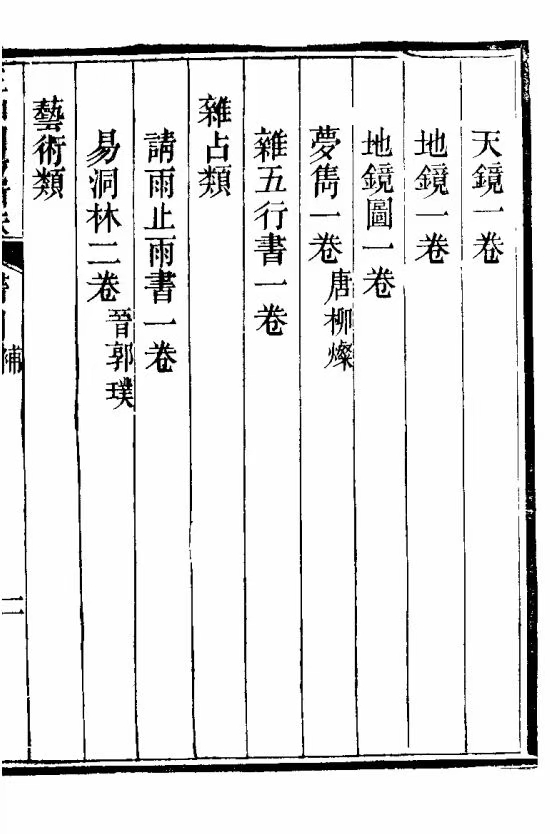 天鏡一卷
地鏡一卷
地鏡圖一卷
夢雋一卷唐柳燦
雜五行書一卷
雜占類
請雨止雨書一卷
易洞林二卷晉郭璞
藝術類
補
二